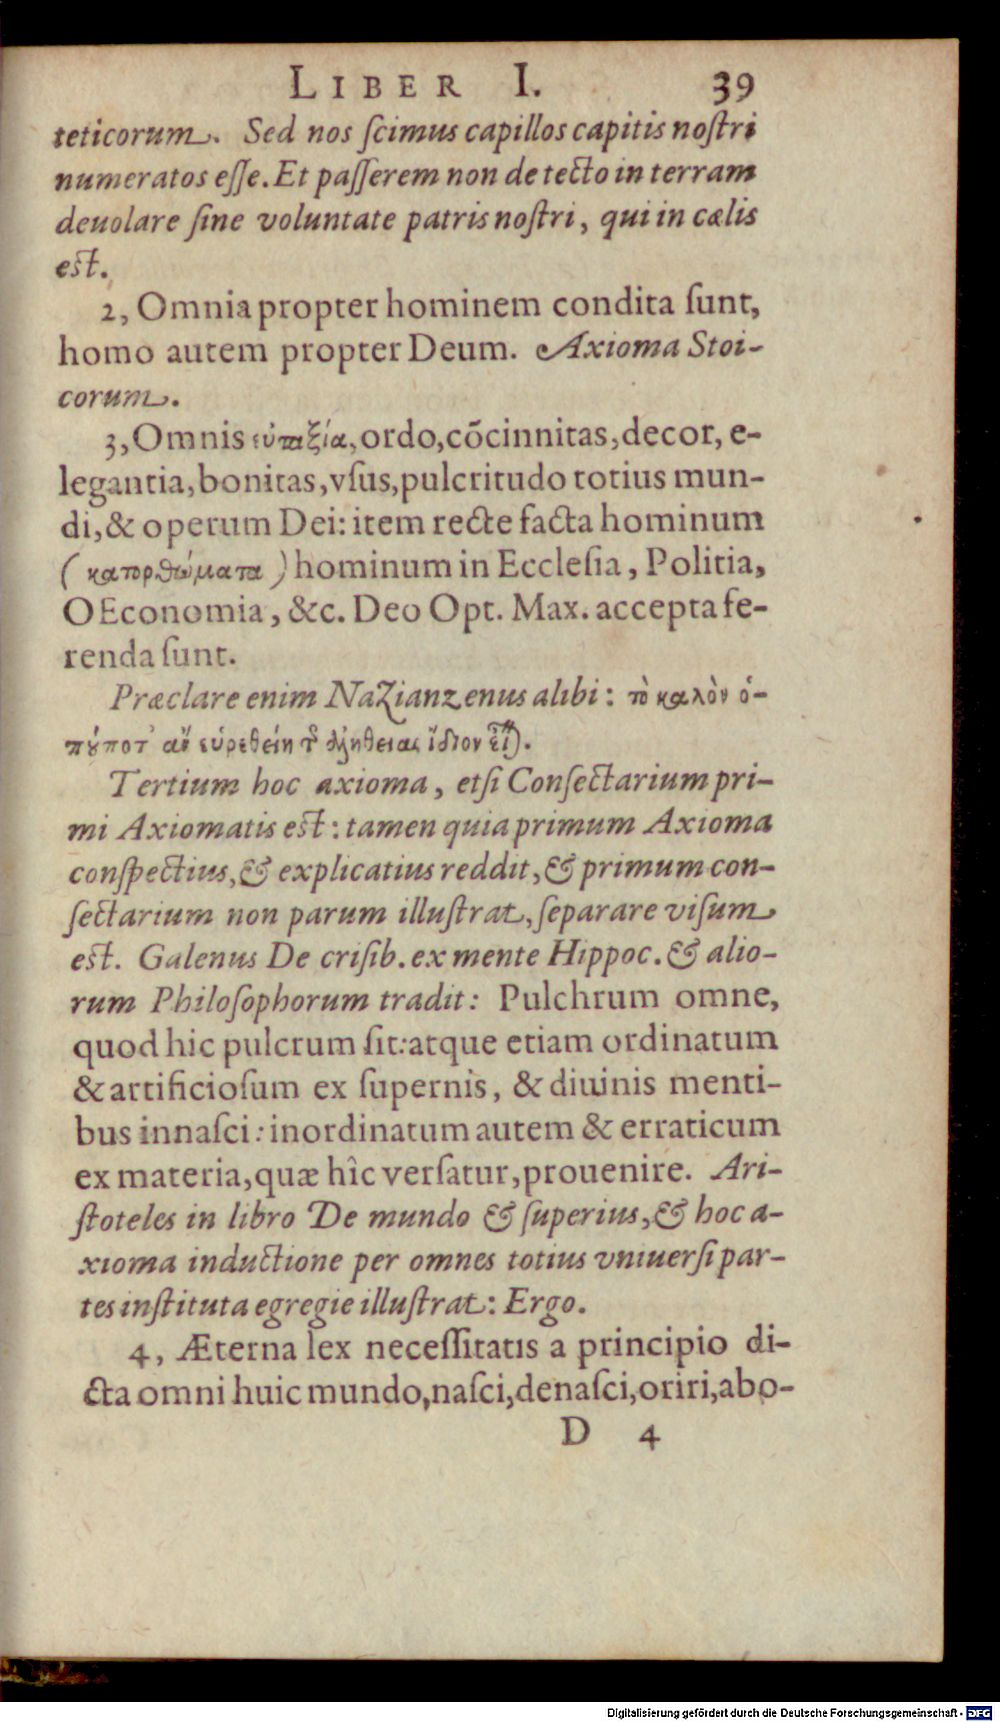 LIBER I. 39
teticorum. Sed nos ſcimus capillos capitis noſtri
numeratos eſſe. Et paſſerem non de tecto in terram
deuolare ſine voluntate patris noſtri, qui in cælis
eſt.
2, Omnia propter hominem condita ſunt,
homo autem propter Deum. Axioma Stoi-
corum.
3, Omnis εὐταξία, ordo, cõcinnitas, decor, e-
legantia, bonitas, vſus, pulcritudo totius mun-
di, & operum Dei: item recte facta hominum
(κατορθώματα) hominum in Eccleſia, Politia,
OEconomia, &c. Deo Opt. Max. accepta fe-
renda ſunt.
Præclare enim Nazianzenus alibi: τὸ καλὸν ὁ-
πȣ́ποτ' ἂν εὑρεθείη τ͂ ἀληθείας ἴδιον
Tertium hoc axioma, etſi Conſectarium pri-
mi Axiomatis eſt: tamen quia primum Axioma
conſpectius, & explicatius reddit, & primum con-
ſectarium non parum illuſtrat, ſeparare viſum
eſt. Galenus De criſib. ex mente Hippoc. & alio-
rum Philoſophorum tradit: Pulchrum omne,
quod hic pulcrum ſit: atque etiam ordinatum
& artificioſum ex ſupernis, & diuinis menti-
bus innaſci: inordinatum autem & erraticum
ex materia, quæ hîc verſatur, prouenire. Ari-
ſtoteles in libro De mundo & ſuperius, & hoc a-
xioma inductione per omnes totius vniuerſi par-
tes inſtituta egregie illuſtrat: Ergo.
4, Æterna lex neceſſitatis a principio di-
cta omni huic mundo, naſci, denaſci, oriri, abo-
D 4
Digitalisierung gefördert durch die Deutsche Forschungsgemeinschaft - DFG